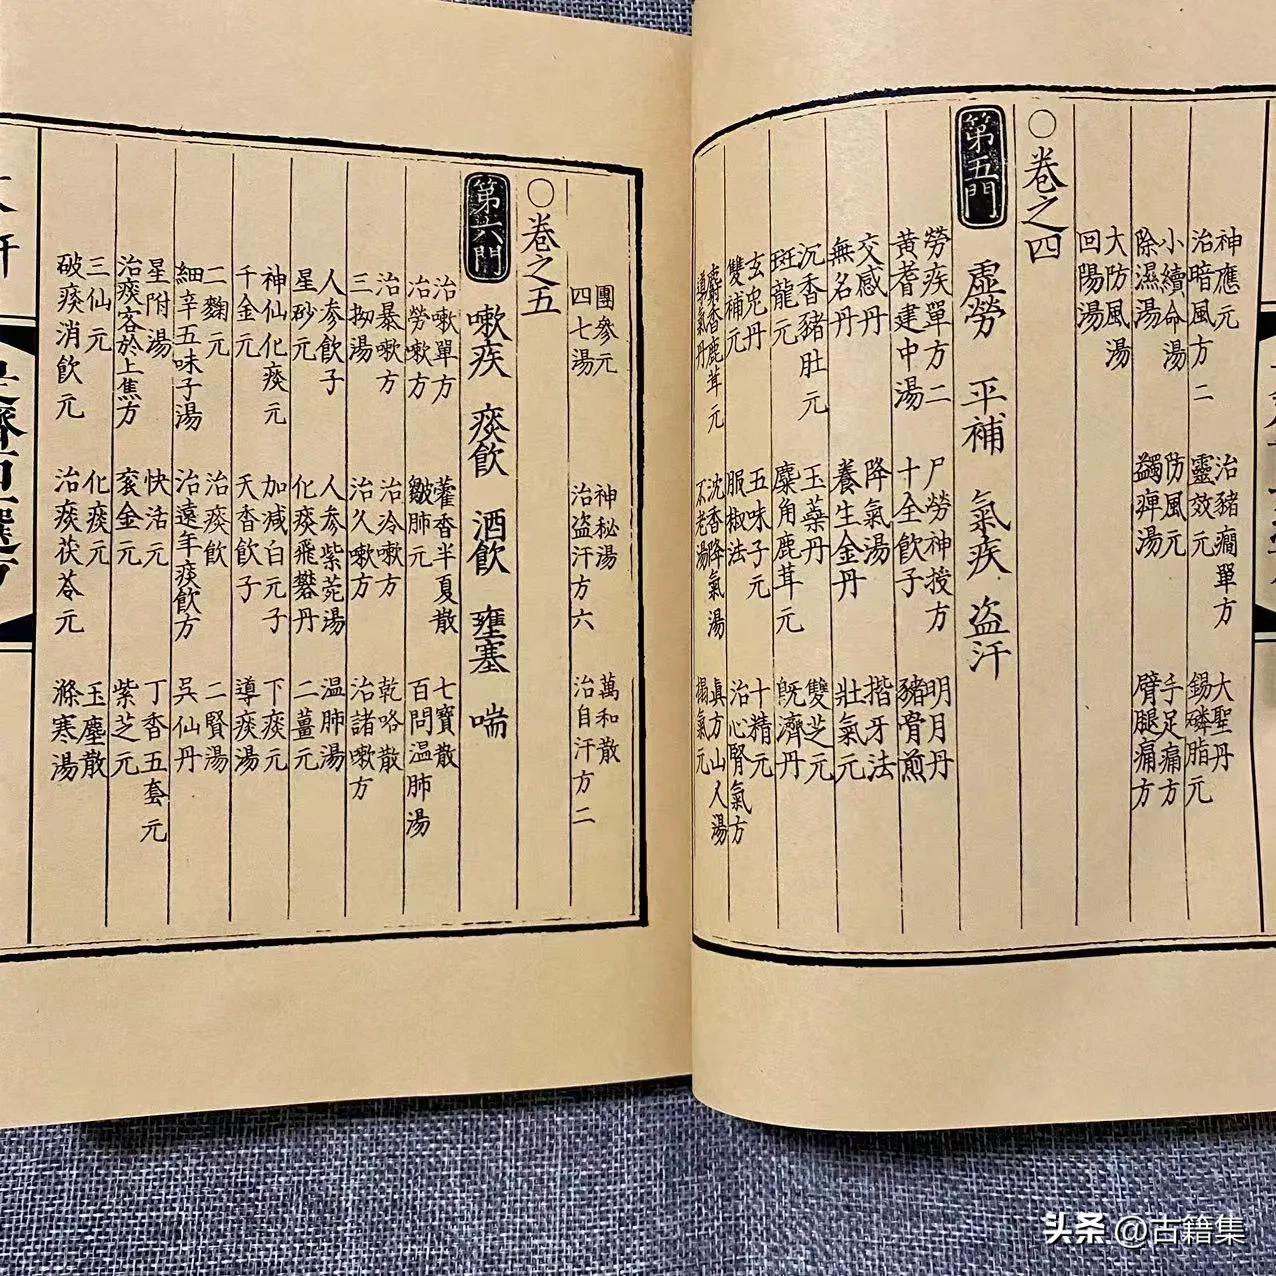 神應元 治豬癇單方 大聖丹
治暗風方二 靈效元 錫磷脂元
小續命湯 防風元 手足痛方
除濕湯 蠲痹湯 臂腿痛方
大防風湯
回陽湯
○卷之四
第五門 虛勞 平補 氣疾 盜汗
勞疾單方二 尸勞神授方 明月丹
黃耆建中湯 十全飲子 豬骨煎
交感丹 降氣湯 揩牙法
無名丹 養生金丹 壯氣元
沉香豬肚元 玉蘂丹 雙芝元
斑龍元 麋角鹿茸元 既濟丹
玄兔丹 五味子元 十精元
雙補元 服椒法 治心腎氣方
香鹿茸元 沈香降氣湯 真方山人湯
導氣丹 不老湯 搨氣元
團參元 神秘湯 萬和散
四七湯 治盜汗方六 治自汗方二
○卷之五
第六門 嗽疾 痰飲 酒飲 壅塞 喘
治嗽單方 藿香半夏散 七寶散
治勞嗽方 皺肺元 百問温肺湯
治暴嗽方 治冷嗽方 乾咯散
三拗湯 治久嗽方 治諸嗽方
人參飲子 人參紫菀湯 温肺湯
星砂元 化痰飛礬丹 二薑元
神仙化痰元 加減白元子 下痰元
千金元 天香飲子 導痰湯
二麴元 治痰飲 二賢湯
細辛五味子湯 治遠年痰飲方 吳仙丹
星附湯 快活元 丁香五套元
治痰客於上焦方 袞金元 紫芝元
三仙元 化痰元 玉塵散
破痰消飲元 治痰茯苓元 滌寒湯
头条 @古籍集